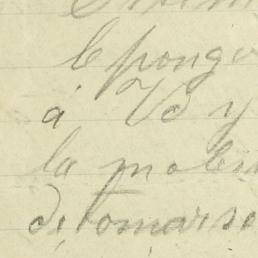 le ponga
á Vd y
la moles
de tomarse